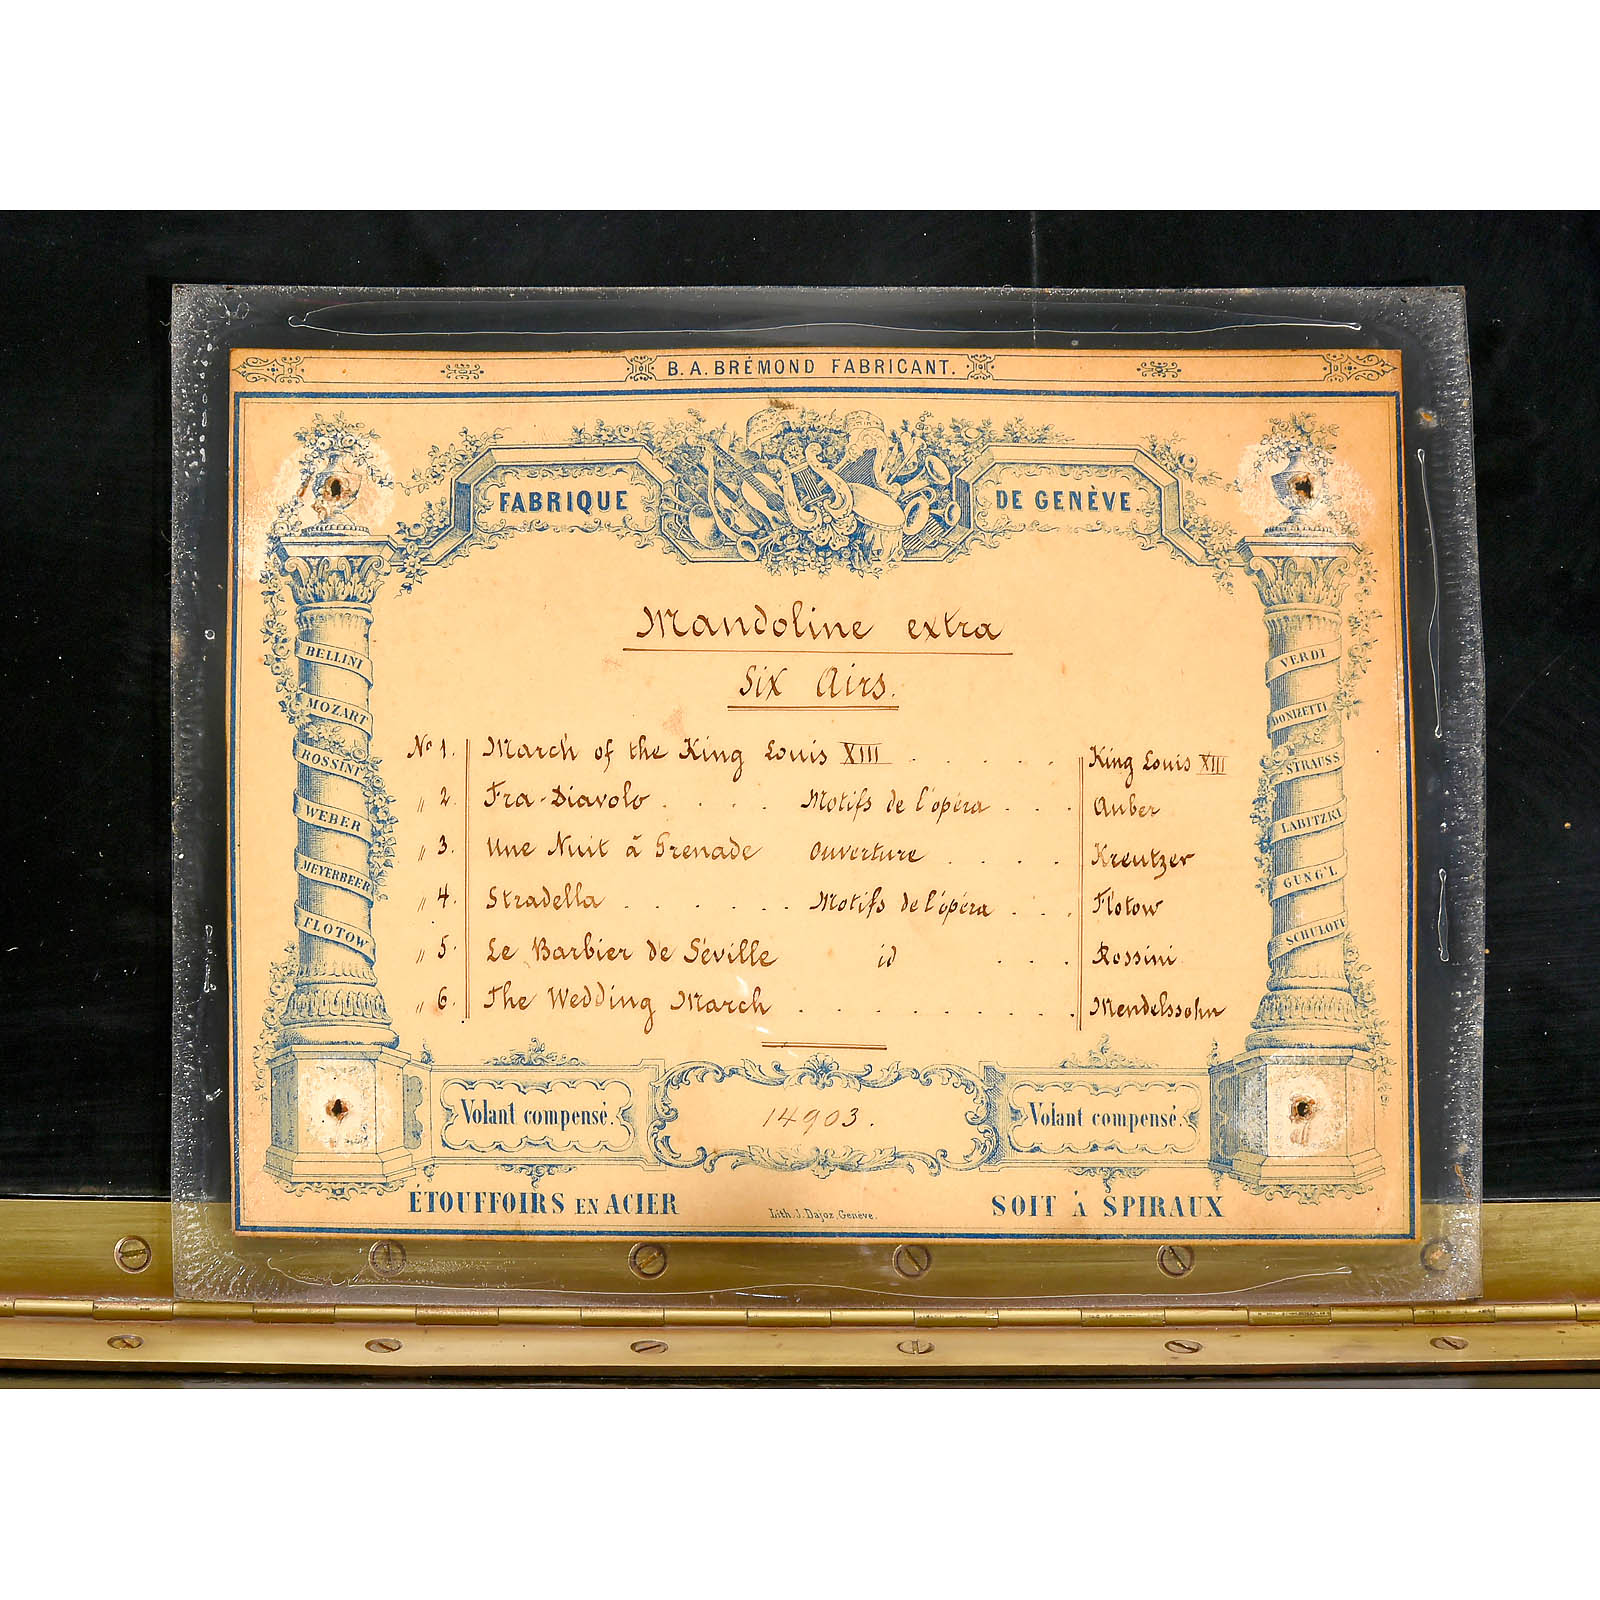 B. A. BRÉMOND FABRICANT.
FABRIQUE DE GENÈVE
Mandoline extra
Six Airs.
No 1. March of the King Louis XIII . . . . . King Louis XIII
" 2. Fra-Diavolo . . . . Motifs de l'opéra . . . Auber
" 3. Une Nuit à Grenade Ouverture . . . . Kreutzer
" 4. Stradella . . . . . . Motifs de l'opéra . . . Flotow
" 5. Le Barbier de Séville id . . . Rossini
" 6. The Wedding March . . . . . . . . . . Mendelssohn
BELLINI
MOZART
ROSSINI
WEBER
MEYERBEER
FLOTOW
VERDI
DONIZETTI
STRAUSS
LABITZKI
GUNG'L
SCHULOFF
Volant compensé. 14903. Volant compensé.
ÉTOUFFOIRS EN ACIER SOIT À SPIRAUX
Lith. J. Dajoz, Genève.